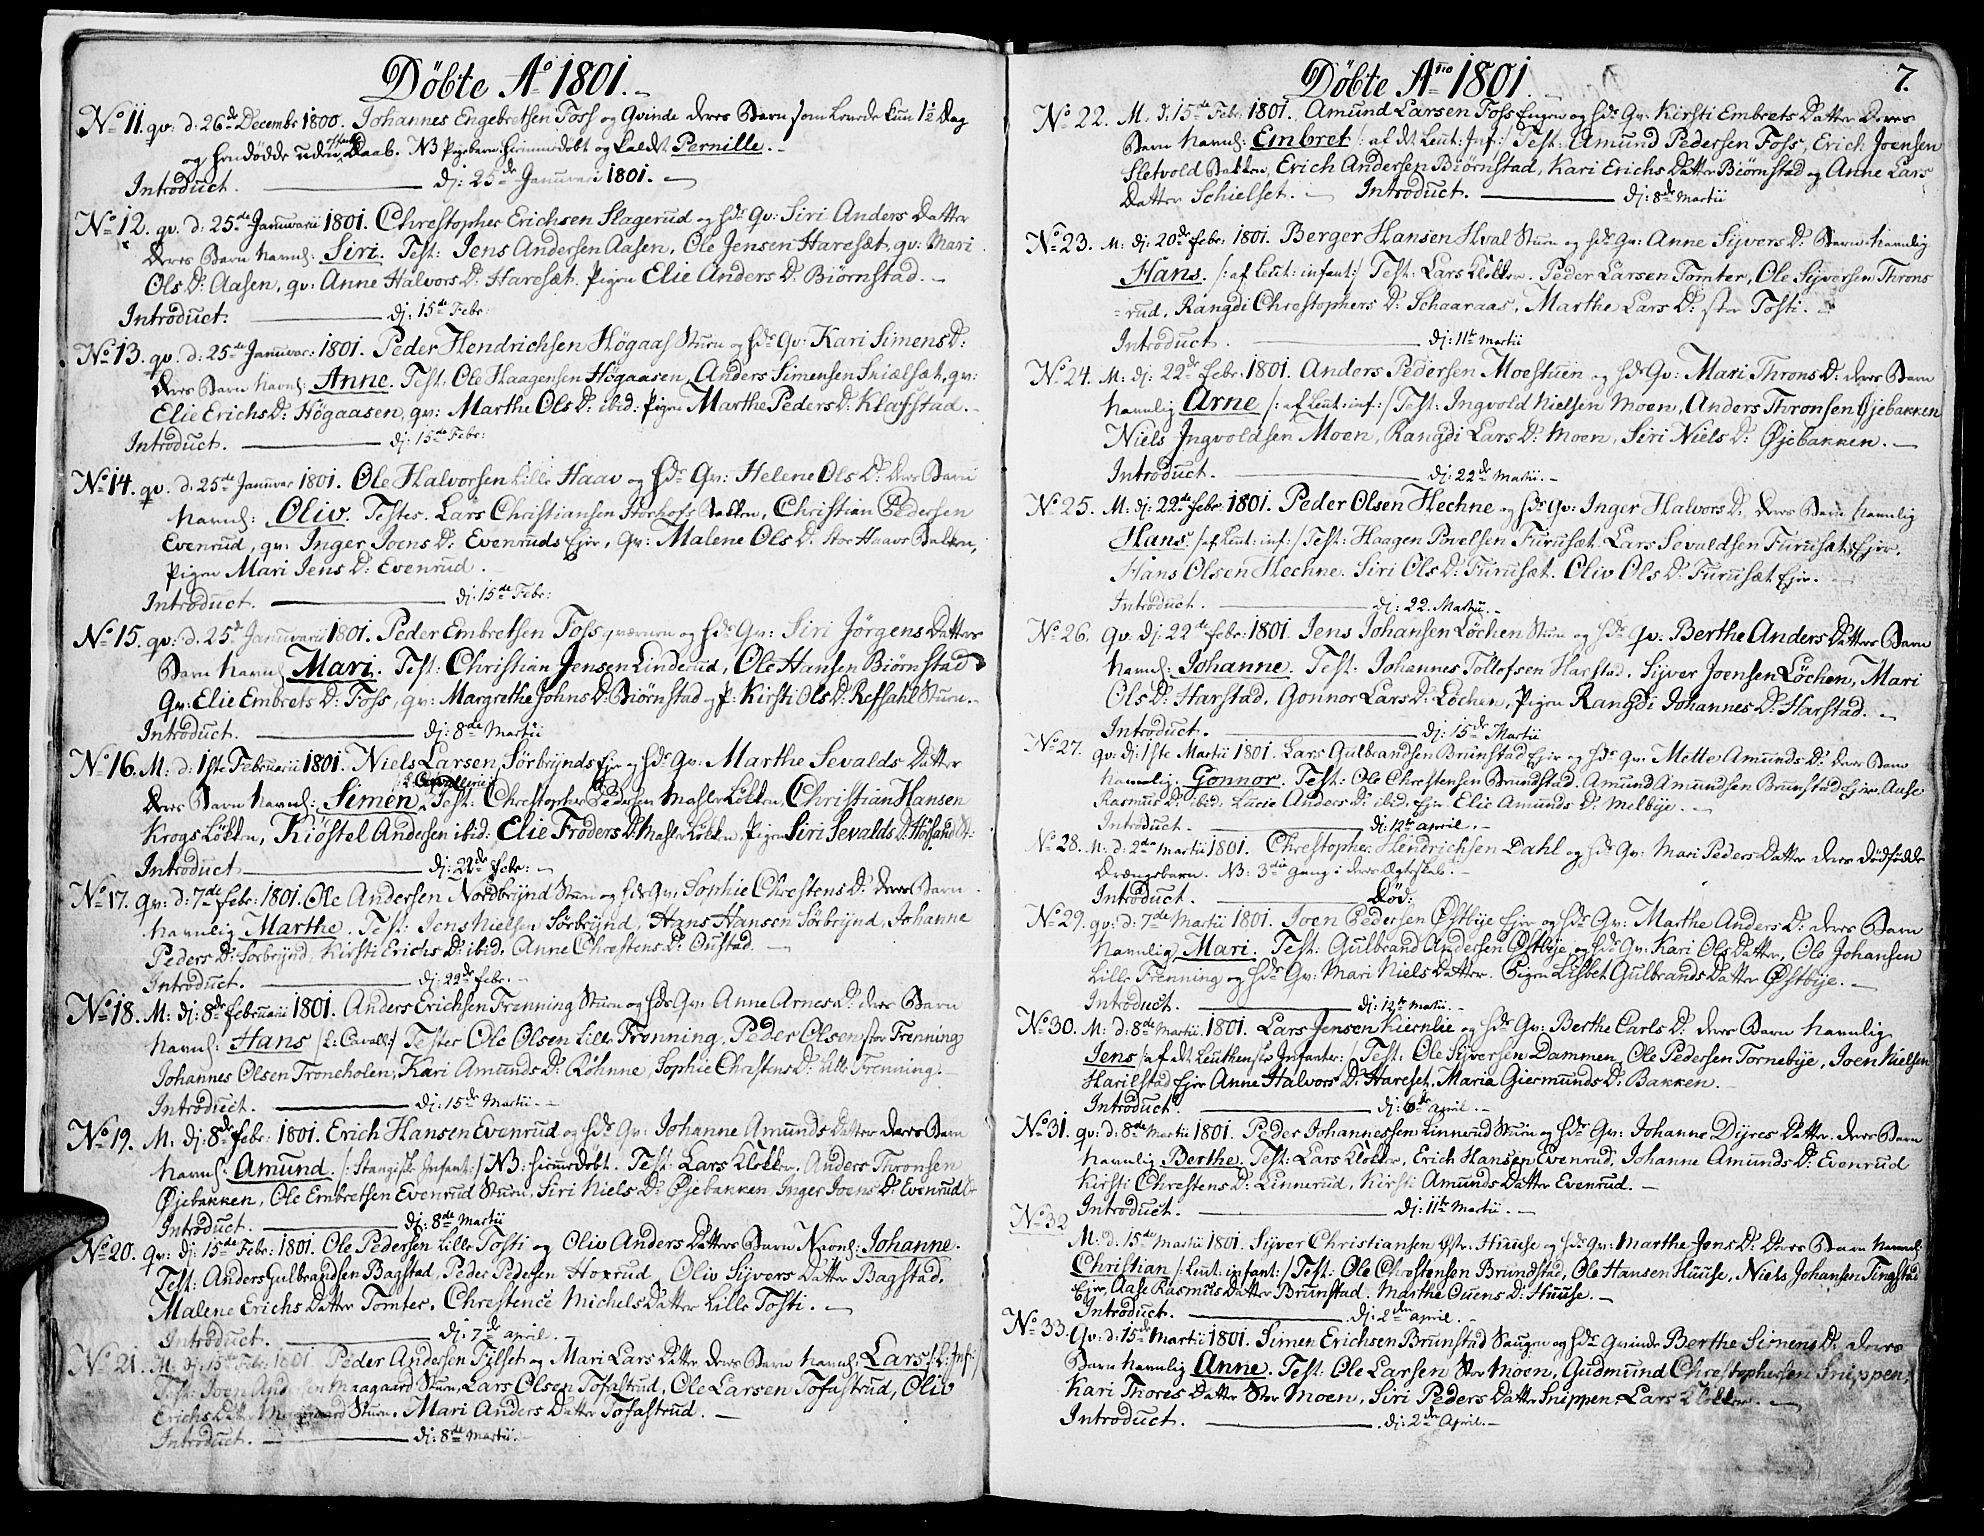 Döbte Aº 1801.
Nº 11. qv: d: 26de Decembr 1800. Johannes Engebretsen Foss og Qvinde deres Barn som levede kun 1½ Dag
og hendödde uden Daab. NB Pigebarn: hiemmedöbt og kaldet Pernille.
Introduct. dj: 25de Januarii 1801.
Nº 12. qv. d: 25de Januarii 1801. Chrestopher Erichsen Slagerud og hds Qv: Siri Anders Datter
deres Barn Navnl: Siri. Test: Jens Andersen Aasen, Ole Jensen Haresæt, qv: Mari
Ols D: Aasen, qv: Anne Halvors D: Haresæt. Pigen Elie Anders D: Biörnstad.
Introduct: dj: 15de Febr:
Nº 13. qv. d: 25de Januar: 1801. Peder Hendrichsen Högaas Stuen og hds Qv: Kari Simens D:
deres Barn Navnl: Anne. Test: Ole Haagensen Högaasen, Anders Simensen Skiælsæt, qv:
Elie Erichs D: Högaasen, qv: Marthe Ols D: ibid: Pigen Marthe Peders D: Klafstad.
Introduct. dj: 15de Febr:
Nº 14. qv. d: 25de Januar 1801. Ole Halvorsen Lille Haav og hds Qv: Helene Ols D: deres Barn
Navnl: Oliv. Testes. Lars Christiansen Storhofs Bakken, Christian Pedersen
Evenrud, qv: Inger Joens D: Evenruds Ejer, qv: Malene Ols D: Stor Haavs Bakken,
Pigen Mari Jens D: Evenrud.
Introduct. dj: 15de Febr:
Nº 15. qv: d: 25de Januarii 1801. Peder Embretsen Foss qværnen og hds Qv: Siri Jörgens Datters
Barn Navnl: Mari. Test: Christian Jensen Linderud, Ole Hansen Biörnstad
Qv: Elie Embrets D: Foss, qv: Margrethe Johns D: Biörnstad og P: Kirsti Ols D: Reffsahl Stuen.
Introduct. dj: 8de Martii
Nº 16. M: d: 1ste Februarii 1801. Niels Larsen Sörbrynds Ejer og hds Qv: Marthe Sevalds Datter
deres Barn Navnl: Simen. /: L: Cavallerie :/ Test: Chrestopher Pedersen Mæhler Lökken, Christian Hansen
Krogs Lökken, Kiöstel Andersen ibid: Elie Froders D: Mæhler Lökken, Pigen Siri Sevalds D:
Introduct. dj: 22de Febr:
Nº 17. qv: d: 7de Febr: 1801. Ole Andersen Nordbrynd Stuen og hds Qv: Sophie Chrestens D: deres Barn
Navnlig Marthe. Test: Jens Nielsen Sörbrynd, Hans Hansen Sörbrynd, Johanne
Peders D: Sörbrynd, Kirsti Erichs D: ibid. Anne Chrestens D: Oustad.
Introduct. dj: 22de Febr.
Nº 18. M: dj: 8de Februarii 1801. Anders Erichsen Frenning Stuen og hds Qv: Anne Arnes D: deres Barn
Navnl: Hans /: L: Cavall: / Testes Ole Olsen Lille Frenning, Peder Olsen stor Frenning
Johannes Olsen Troneholen, Kari Amunds D: Röhnne, Sophie Chrestens D: Lille Frenning.
Introduct. dj: 15de Martii.
Nº 19. M: dj: 8de Febr: 1801. Erich Hansen Evenrud og hds Qv: Johanne Amunds Datter deres Barn
Navnl: Amund. /: Stangiske Infant: / NB: hiemmedöbt. Test: Lars Klokker, Anders Thronsen
Öjebakken, Ole Embretsen Evenrud Stuen, Siri Niels D: Öjebakken, Inger Joens D: Evenrud
Introduct. dj: 8de Martii
Nº 20. Qv: dj: 15de Febr: 1801. Ole Pedersen Lille Tosti og Oliv Anders Datters Barn Navnl: Johanne.
Test: Anders Gulbrandsen Bagstad, Peder Pedersen Hoxrud, Oliv Sijvers Datter Bagstad.
Malene Erichs Datter Tomter, Chrestence Michels Datter Lille Tosti.
Introduct. dj: 7de April.
Nº 21. M: dj: 15de Febr: 1801. Peder Andersen Tilset og Mari Lars Datter deres Barn Navnl: Lars /: L: Inf: /
Test: Joen Andersen Maagaard Stuen, Lars Olsen Tofastrud, Ole Larsen Tofastrud, Oliv
Erichs Datter Maagaard Stuen, Mari Anders Datter Tofastrud.
Introduct. dj: 8de Martii.
Döbte Anno 1801. 7.
Nº 22. M. d: 15de Febr: 1801. Amund Larsen Foss Engen og hds Qv: Kirsti Embrets Datter deres
Barn Navnl: Embret /: af dt Leut: Inf: / Test: Amund Pedersen Foss, Erich Joensen
Sletvold Bakken, Erich Andersen Biörnstad, Kari Erichs Datter Biörnstad og Anne Lars
Datter Schielset. Introduct. dj: 8de Martii
Nº 23. M: dj: 20de Febr: 1801. Berger Hansen Hval Stuen og hds Qv: Anne Sijvers D: Barn Navnlig
Hans. /: af Leut: infant: / Test: Lars Klokker. Peder Larsen Tomter, Ole Sijversen Throns
=rud, Rangdi Chrestophers D: Schaaraas, Marthe Lars D: stor Tosti.
Introduct. dj: 11te Martii
Nº 24. M: dj: 22de Febr: 1801. Anders Pedersen Moestuen og hds Qv: Mari Throns D: deres Barn
Navnlig Arne /: af Leut: inf: / Test: Ingvold Nielsen Moen, Anders Thronsen Öjebakken
Niels Ingvoldsen Moen, Rangdi Lars D: Moen, Siri Niels D: Öjebakken.
Introduct. dj: 22de Martii.
Nº 25. M: dj: 22de Febr: 1801. Peder Olsen Hechne og hds Qv: Inger Halvors D: deres Barn Navnlig
Hans /: af Leut: inf: / Test: Haagen Povelsen Furusæt, Lars Sevaldsen Furusæt Ejer,
Hans Olsen Hechne. Siri Ols D: Furusæt. Oliv Ols D: Furusæt Ejer.
Introduct. dj: 22. Martii.
Nº 26. Qv: dj: 22de Febr: 1801. Jens Johansen Löchen Stuen og hds Qv: Berthe Anders Datters Barn
Navnl: Johanne. Test: Johannes Tollofsen Harstad, Sijver Joensen Löchen, Mari
Ols D: Harstad, Gonnor Lars D: Löchen, Pigen Rangdi Johannes D: Harstad.
Introduct. dj: 15de Martii
Nº 27. qv: dj: 1ste Martii 1801. Lars Gulbrandsen Brunstad Ejer og hds Qv: Mette Amunds D: deres Barn
Navnlig Gonnor. Test: Ole Chrestensen Brundstad, Amund Amundsen Brunstad Ejer, Aase
Rasmus D: ibid: Lucie Anders D: ibid: Ejer. Elie Amunds D: Melbye.
Introduct. dj: 12te April.
Nº 28. M: d: 2den Martii 1801. Chrestopher Hendrichsen Dahl og hds Qv: Mari Peders Datter deres dödfödde
Drængebarn. NB: 3die gang i deres Ægteskab.
Introduct. Död:
Nº 29. qv: d: 7de Martii 1801. Joen Pedersen Östbye Ejer og hds Qv: Marthe Anders D: deres Barn
Navnlig Mari. Test: Gulbrand Andersen Östbye og hds Qv: Kari Ols Datter, Ole Johansen
Lille Frenning og hds Qv: Mari Niels Datter. Pigen Lisbet Gulbrands Datter Östbye.
Introduct. dj: 12te Martii.
Nº 30. M: d: 8de Martii 1801. Lars Jensen Kiernlie og hds Qv: Berthe Carls D: deres Barn Navnlig
Jens /: af dt Leuthenske Infanter: / Test: Ole Sijversen Dammen, Ole Pedersen Tornebye, Joen Nielsen
Harilstad Ejer Anne Halvors D: Hareset, Maria Giermunds D: Bakken.
Introduct. dj: 6de April.
Nº 31. qv: d: 8de Martii 1801. Peder Johannessen Linnerud Stuen og hds Qv: Johanne Dyres Datter. deres Barn
Navnlig Berthe. Test: Lars Klokker, Erich Hansen Evenrud, Johanne Amunds D: Evenrud
Kirsti Chrestens D: Linnerud, Kirsti Amunds Datter Evenrud.
Introduct. dj: 11te Martii.
Nº 32
M: d: 15de Martii 1801. Sijver Christiansen Østr: Huuse og hds Qv: Marthe Jens D: deres Barn Navnl:
Christian /: Leut: infant: / Test: Ole Chrestensen Brundstad, Ole Hansen Huuse, Niels Johansen Tingstad
Ejer, Aase Rasmus Datter Brunstad. Marthe Ouens D: Huuse.
Introduct. dj: 2den April.
Nº 33. Qv: d: 15de Martii 1801. Simen Erichsen Brunstad Saugen og hds Qvinde Berthe Simens D: deres
Barn Navnlig Anne. Test: Ole Larsen Stor Moen, Gudmund Chrestophersen Snippen,
Kari Thores Datter Stor Moen, Siri Peders Datter Snippen, Lars Klokker.
Introduct. dj: 2den April.